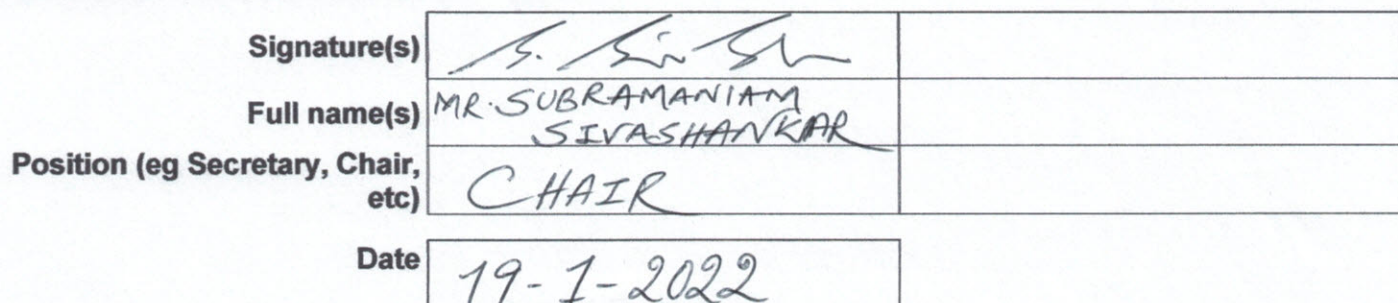 Signature(s)
Full name(s) MR. SUBRAMANIAM
SIVASHANKAR
Position (eg Secretary, Chair,
etc) CHAIR
Date 19-1-2022